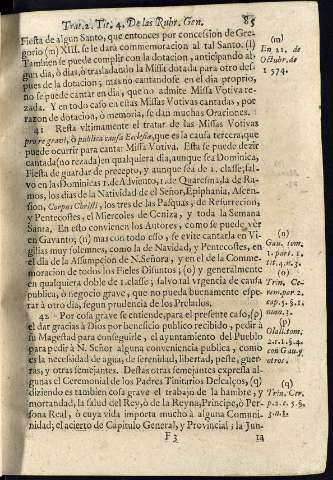 Trat. 2. Tit. 4. De las Rubr. Gen. 85
Fiesta de algun Santo, que entonces por concession de Gre-
gorio (m) XIII. se le dará commemoracion al tal Santo. (l)
Tambien se puede cumplir con la dotacion, anticipando al-
gun dia, ò dias, ò trasladando la Missa dotada para otro des-
pues de la dotacion; mas no cantandose en el dia proprio,
no se puede cantar en dia, que no admite Missa Votiva re-
zada. Y en todo caso en estas Missas Votivas cantadas, por
razon de dotacion, ò memoria, se dan muchas Oraciones.
41 Resta ultimamente el tratar de las Missas Votivas
pro re gravi, ò publica causa Ecclesiæ, que es la causa tercera, que
puede ocurrir para cantar Missa Votiva. Esta se puede dezir
cantada (no rezada) en qualquiera dia, aunque sea Dominica,
Fiesta de guardar de precepto, y aunque sea de 1. classe; sal-
vo en las Dominicas 1. de Aviento, 1. de Quaresma, la de Ra-
mos, los dias de la Natividad de el Señor, Epiphania, Ascen-
sion, Corpus Christi, los tres de las Pasquas, de Resurrecion,
y Pentecostes, el Miercoles de Ceniza, y toda la Semana
Santa. En esto convienen los Autores, como se puede vèr
en Gavanto; (n) mas con todo esso, se evite cantarla en Vi-
gilias muy solemnes, como la de Navidad, y Pentecostes, en
el dia de la Assumpcion de N. Señora, y en el de la Comme-
moracion de todos los Fieles Difuntos; (o) y generalmente
en qualquiera doble de 1. classe; salvo tal urgencia de causa
publica, ò negocio grave, que no pueda buenamente espe-
rar à otro dia, segun prudencia de los Prelados.
42 Por cosa grave se entiende, para el presente caso, (p)
el dar gracias à Dios por beneficio publico recibido, pedir à
su Magestad para conseguirle, el ayuntamiento del Pueblo
para pedir à N. Señor alguna conveniencia publica, como
es la necessidad de agua, de serenidad, libertad, peste, guer-
ras, y otras semejantes. Destas otras semejantes expressa al-
gunas el Ceremonial de los Padres Tinitarios Descalços, (q)
diziendo es tambien cosa grave el trabajo de la hambre, y
mortandad, la salud del Rey, ò de la Reyna, Principe, ò Per-
sona Real, ò cuya vida importa mucho à alguna Comuni-
nidad; el acierto de Capitulo General, y Provincial; la Jun-
F 3 ta
(m)
En 22. de
Octubr. de
1574.
(n)
Gau. tom.
1. part. 1.
tit. 4. n. 3.
(o)
Trin. Ce-
rem. par. 2.
cap. 5. §. 1.
num. 3.
(p)
Olall. tom.
2. t. 1. §. 4.
con Gau. y
otros.
(q)
Trin. Cer.
p. 2. c. 5. §.
3. n. 1.